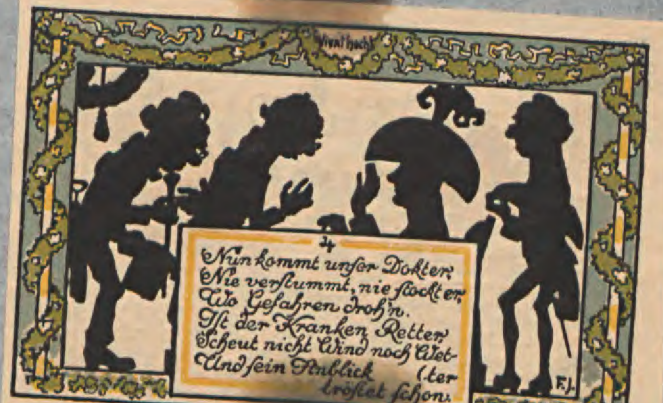 Vivat hoch!
4
Nun kommt unser Dokter,
Nie verstummt, nie stockt er,
Wo Gefahren droh'n.
Ist der Kranken Retter,
Scheut nicht Wind noch Wet-
Und sein Anblick (ter
tröstet schon.
F.J.